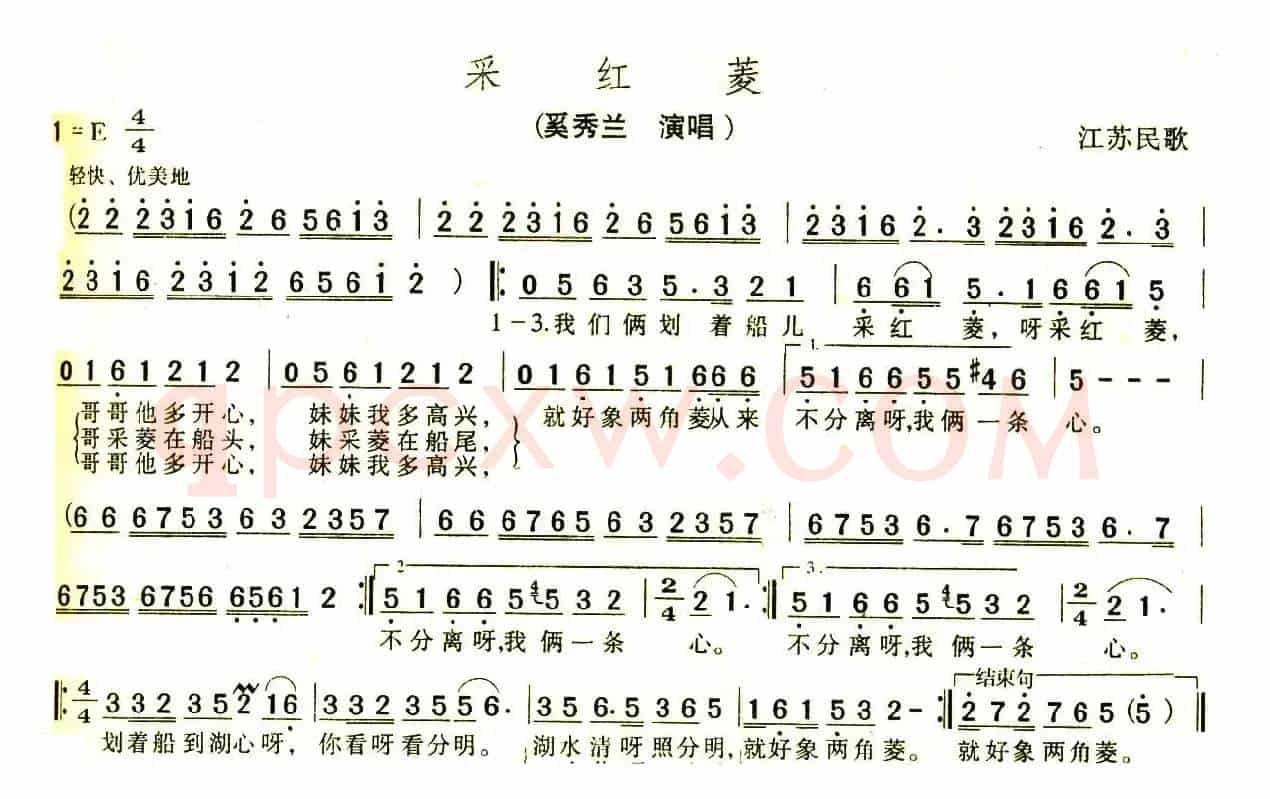 采 红 菱
1=E 4/4
(奚秀兰 演唱)
江苏民歌
轻快、优美地
(2 2 2316 26 5613 | 2 2 231626 5613 | 2316 2. 3 2316 2. 3 |
2316 2312 6561 2 ) ‖: 0 5 6 3 5. 3 2 1 | 6 61 5. 1 6 61 5 |
1-3.我们俩划 着船儿 采红 菱, 呀采红 菱,
0 1 6 1 2 1 2 | 0 5 6 1 2 1 2 | 0 1 6 1 5 1 66 6 | 1. 5 1 6 6 5 5 #4 6 | 5 - - -
哥哥他多开心, 妹妹我多高兴, 就好象两角菱从来 不分离呀,我俩一条 心。
哥采菱在船头, 妹采菱在船尾,
哥哥他多开心, 妹妹我多高兴,
(6 6 6753 6 3 2357 | 6 6 6765 6 3 2357 | 6753 6. 7 6753 6. 7 |
6753 6756 6561 2 :‖ 2 5 1 6 6 5 4 5 3 2 | 2/4 2 1. :‖ 3. 5 1 6 6 5 4 5 3 2 | 2/4 2 1. |
不分离呀,我 俩一条 心。 不分离呀,我 俩一条 心。
‖: 4/4 3 32 352 16 | 3 32 355 6. | 3 56. 5 365 | 161 53 2- :‖ 结束句 2 72 765 (5) ‖
划着船到湖心呀, 你看呀看分明。 湖水清呀照分明, 就好象两角菱。 就好象两角菱。
qpcxw.com